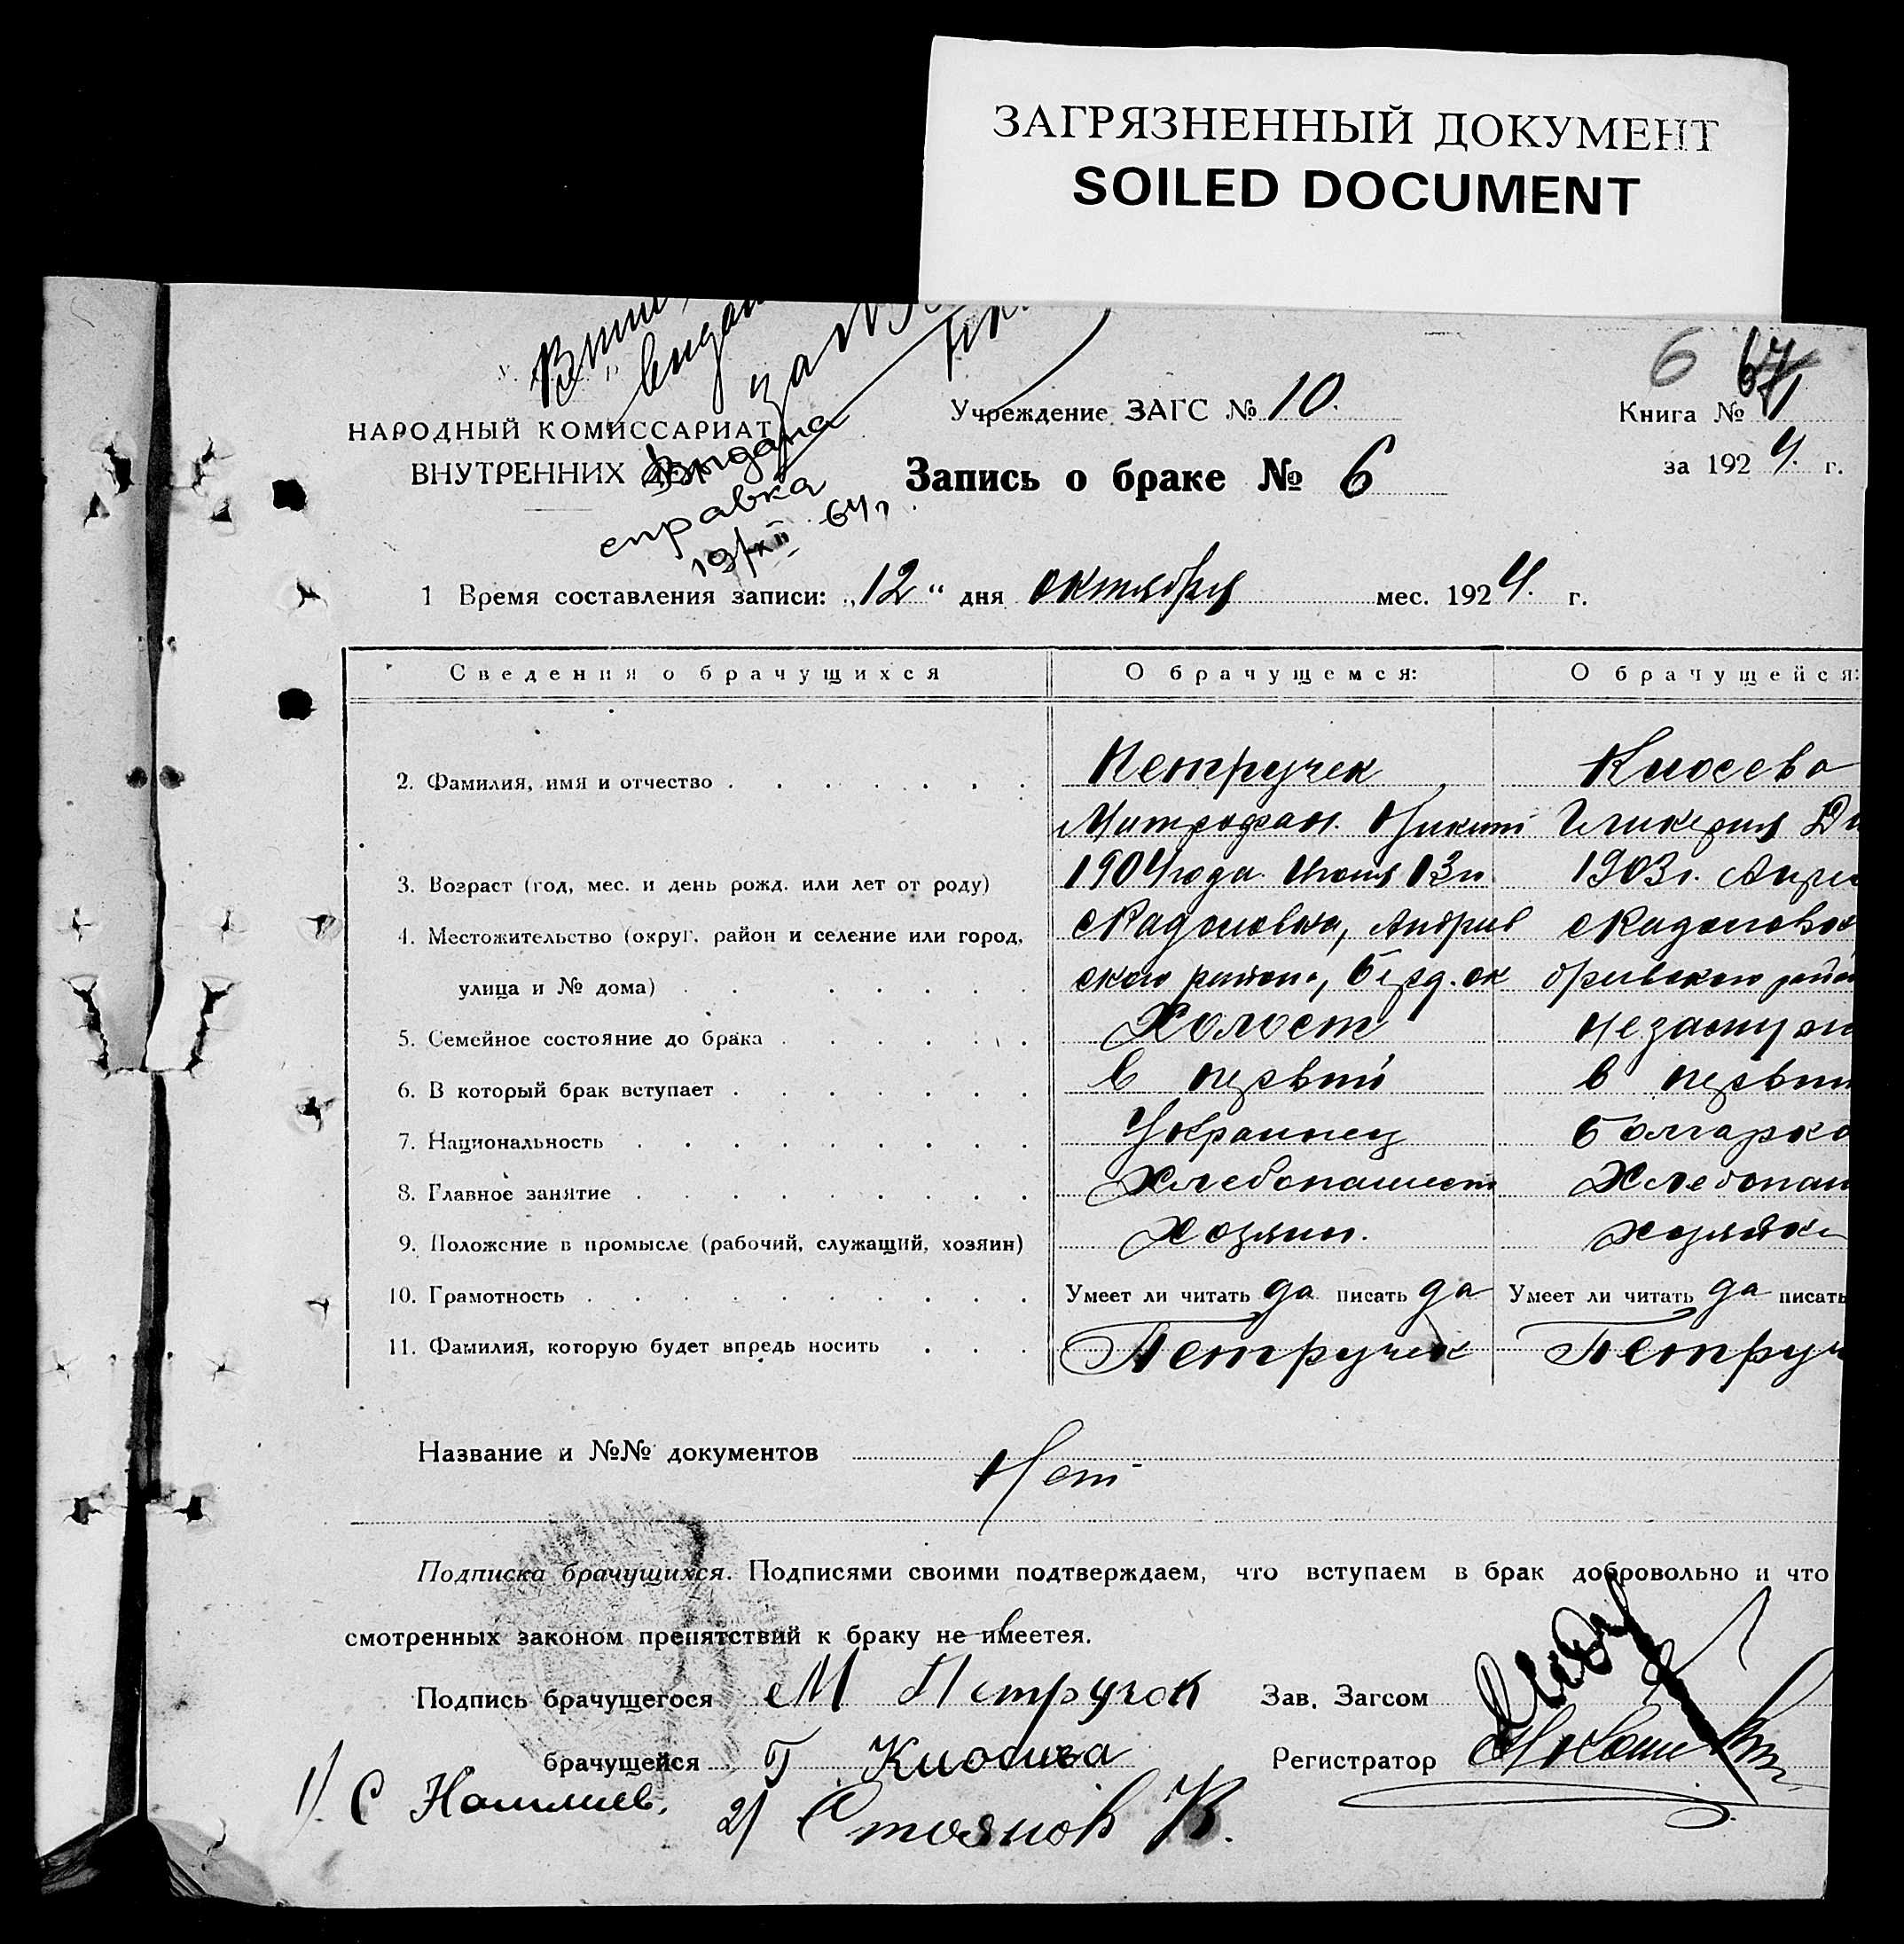 ЗАГРЯЗНЕННЫЙ ДОКУМЕНТ
SOILED DOCUMENT
6 67
НАРОДНЫЙ КОМИССАРИАТ
ВНУТРЕННИХ ДЕЛ
Учреждение ЗАГС № 10.
Книга № 1
за 1924. г.
Запись о браке № 6
Выдана
справка
19/XII 64г
1 Время составления записи: „12“ дня октября мес. 1924. г.
Сведения о брачущихся О брачущемся: О брачущейся:
2. Фамилия, имя и отчество Петручек Киосева
Митрофан. Никит Гликерия
3. Возраст (год, мес. и день рожд. или лет от роду) 1904 года Июня 13 1903г.
4. Местожительство (округ, район и селение или город, с Радоловка, Андрив с Радоловка
улица и № дома) ского района, Берд. ок дривского
5. Семейное состояние до брака Холост незамуж
6. В который брак вступает в первый в первы
7. Национальность Украинец болгарка
8. Главное занятие Хлебопашест Хлебопаш
9. Положение в промысле (рабочий, служащий, хозяин) хозяин. хозяйка
10. Грамотность Умеет ли читать да писать да Умеет ли читать да писать
11. Фамилия, которую будет впредь носить Петручек Петруч
Название и №№ документов Нет
Подписка брачущихся. Подписями своими подтверждаем, что вступаем в брак добровольно и что
смотренных законом препятствий к браку не имеется.
Подпись брачущегося М Петручок Зав. Загсом
брачущейся Г Киосева Регистратор
1) С 2) Стоянов К.